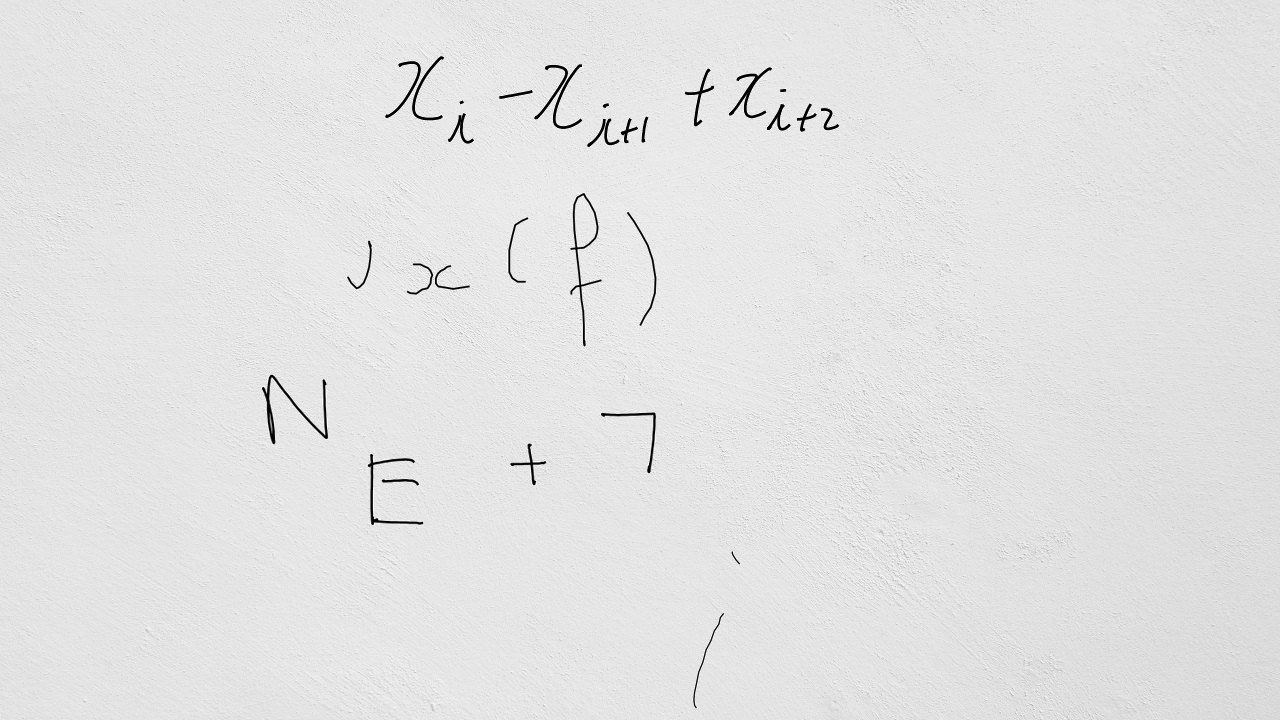 x_i - x_{i+1} + x_{i+2}
J x (f)
N_E + 7